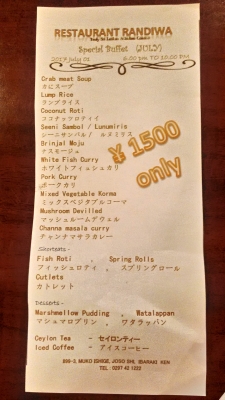 RESTAURANT RANDIWA
Special Buffet (JULY)
2017 July 01 6.00 PM TO 10.00 PM
Crab meat Soup
かにスープ
Lump Rice
ランプライス
Coconut Roti
ココナッツロティイ
Seeni Sambol / Lunumiris
シーニサンバル / ルヌミリス
Brinjal Moju
ナスモージュ
White Fish Curry
ホワイトフィッシュカリ
Pork Curry
ポークカリ
Mixed Vegetable Korma
ミックスベジタブルコーマ
Mushroom Devilled
マッシュルームデヴェル
Channa masala curry
チャンナマサラカレー
¥ 1500
only
Shorteats-
Fish Roti , Spring Rolls
フィッシュロティ , スプリングロール
Cutlets
カトレット
Desserts-
Marshmellow Pudding , Watalappan
マシュマロプリン , ワタラッパン
Ceylon Tea - セイロンティー
Iced Coffee - アイスコーヒー
MUKO ISHIGE, JOSO SHI, IBARAKI KEN
TEL : 0297 42 1222